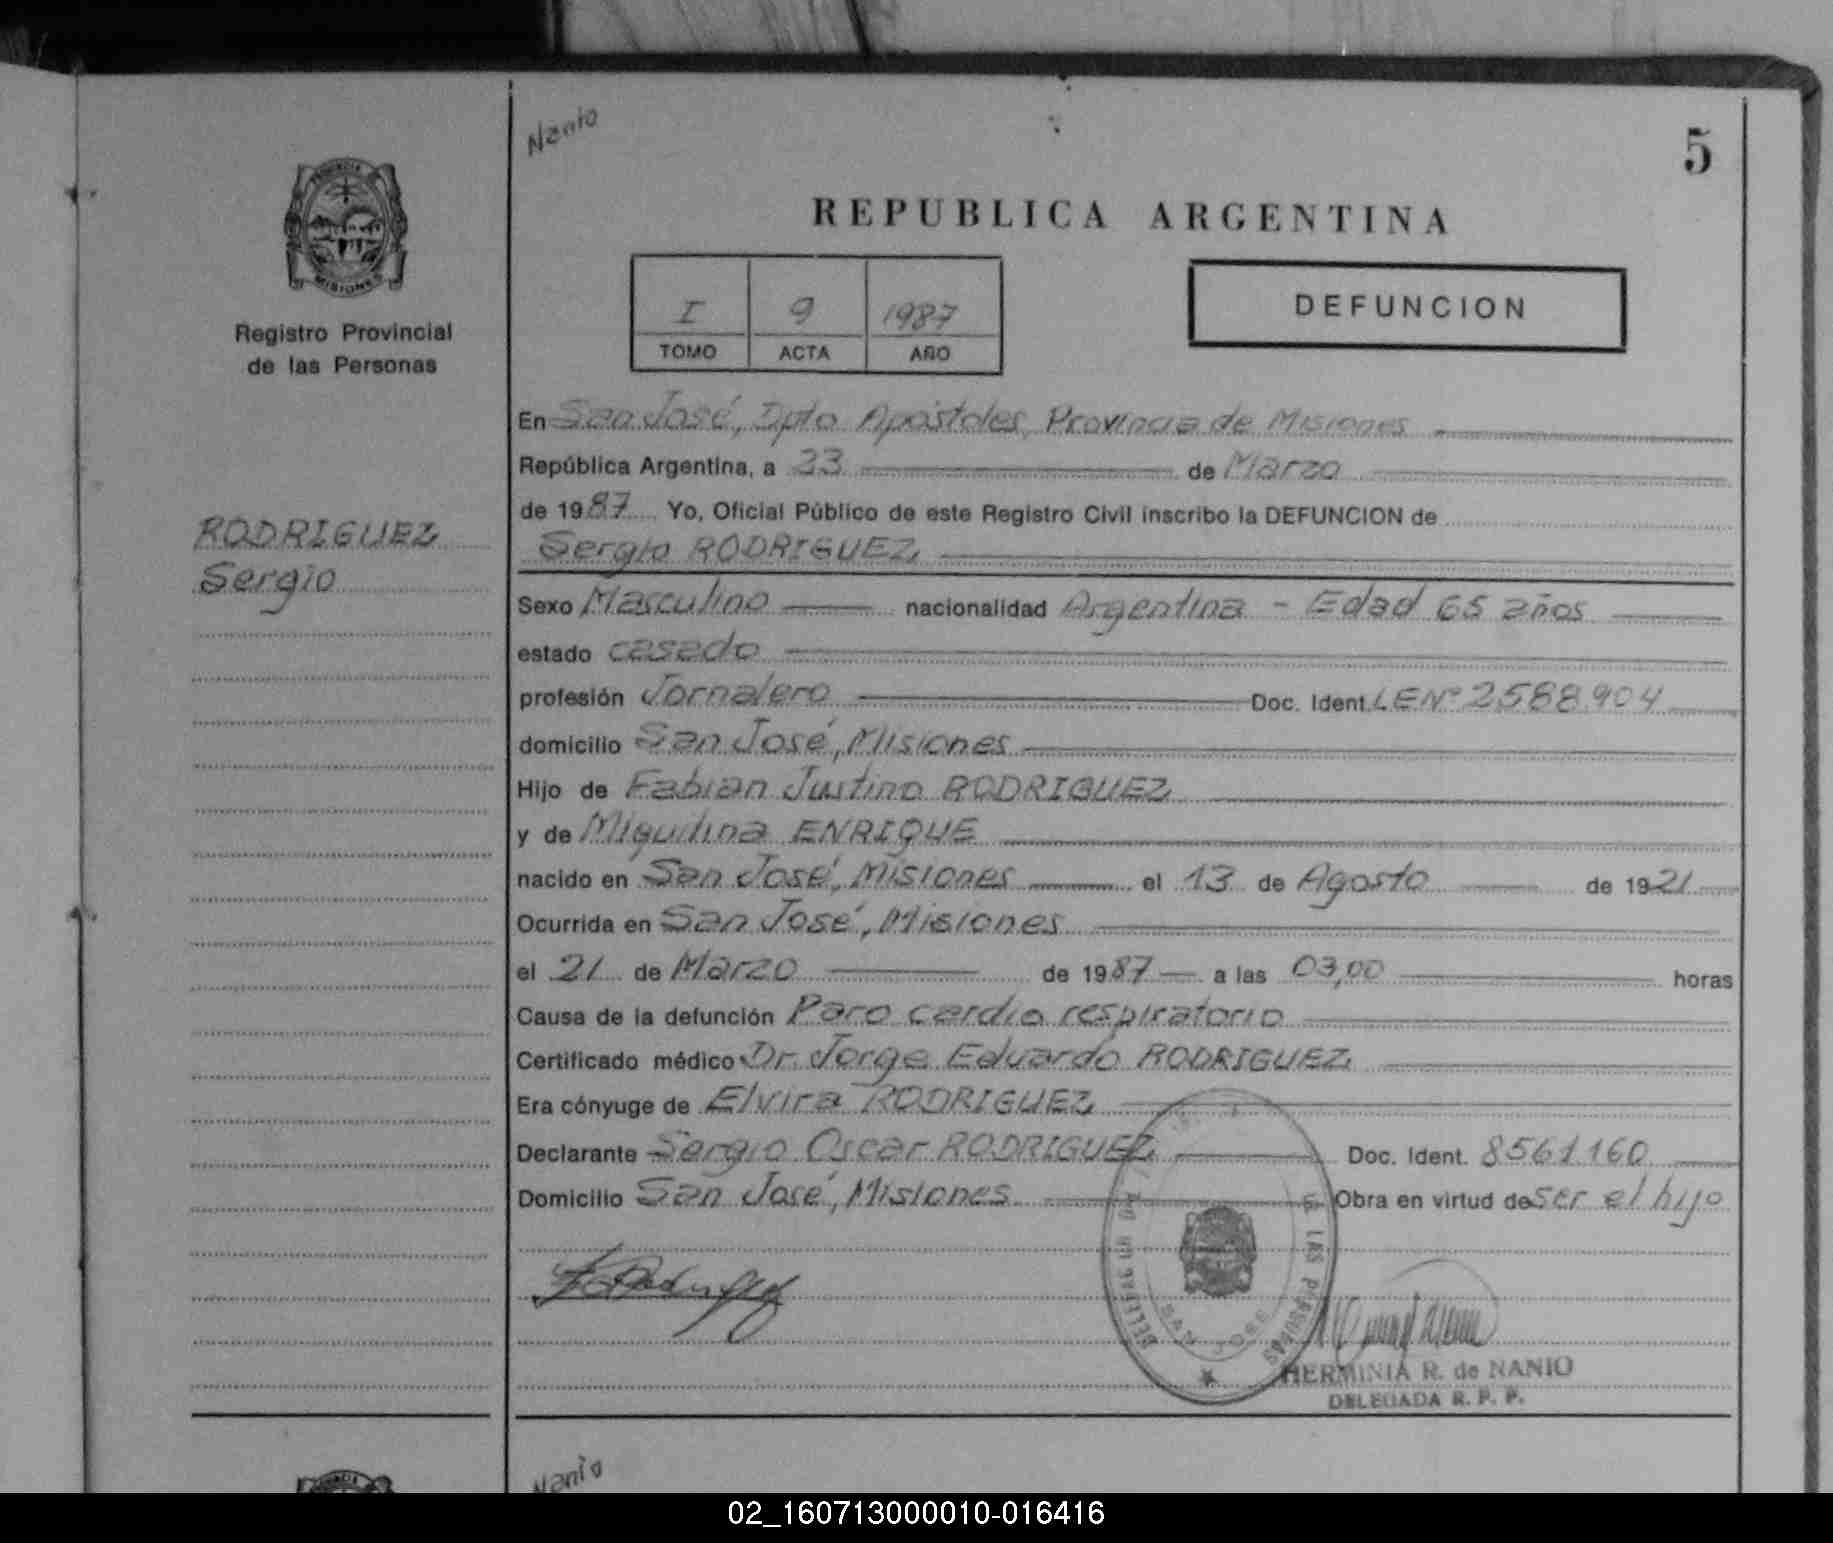 Nanio
5
PROVINCIA
MISIONES
Registro Provincial
de las Personas
REPUBLICA ARGENTINA
I 9 1987
TOMO ACTA AÑO
DEFUNCION
RODRIGUEZ
Sergio
En San José, Dpto Apóstoles, Provincia de Misiones
República Argentina, a 23 de Marzo
de 1987 Yo, Oficial Público de este Registro Civil inscribo la DEFUNCION de
Sergio RODRIGUEZ
Sexo Masculino nacionalidad Argentina - Edad 65 años
estado casado
profesión Jornalero Doc. Ident. LE Nº 2588904
domicilio San José, Misiones
Hijo de Fabian Justino RODRIGUEZ
y de Miguilina ENRIQUE
nacido en San José, Misiones el 13 de Agosto de 1921
Ocurrida en San José, Misiones
el 21 de Marzo de 1987 a las 03,00 horas
Causa de la defunción Paro cardio respiratorio
Certificado médico Dr. Jorge Eduardo RODRIGUEZ
Era cónyuge de Elvira RODRIGUEZ
Declarante Sergio Oscar RODRIGUEZ Doc. Ident. 8561160
Domicilio San José, Misiones Obra en virtud de ser el hijo
LAS PERSONAS
SAN JOSE
HERMINIA R. de NANIO
DELEGADA R. P. P.
Nanio
02_160713000010-016416